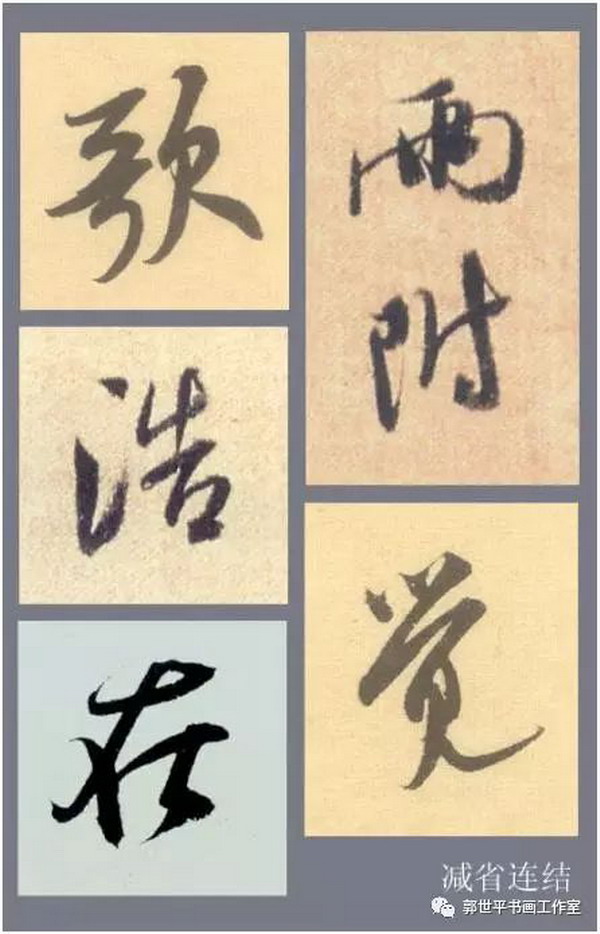 歌
浩
在
雨
附
觉
减省连结
郭世平书画工作室